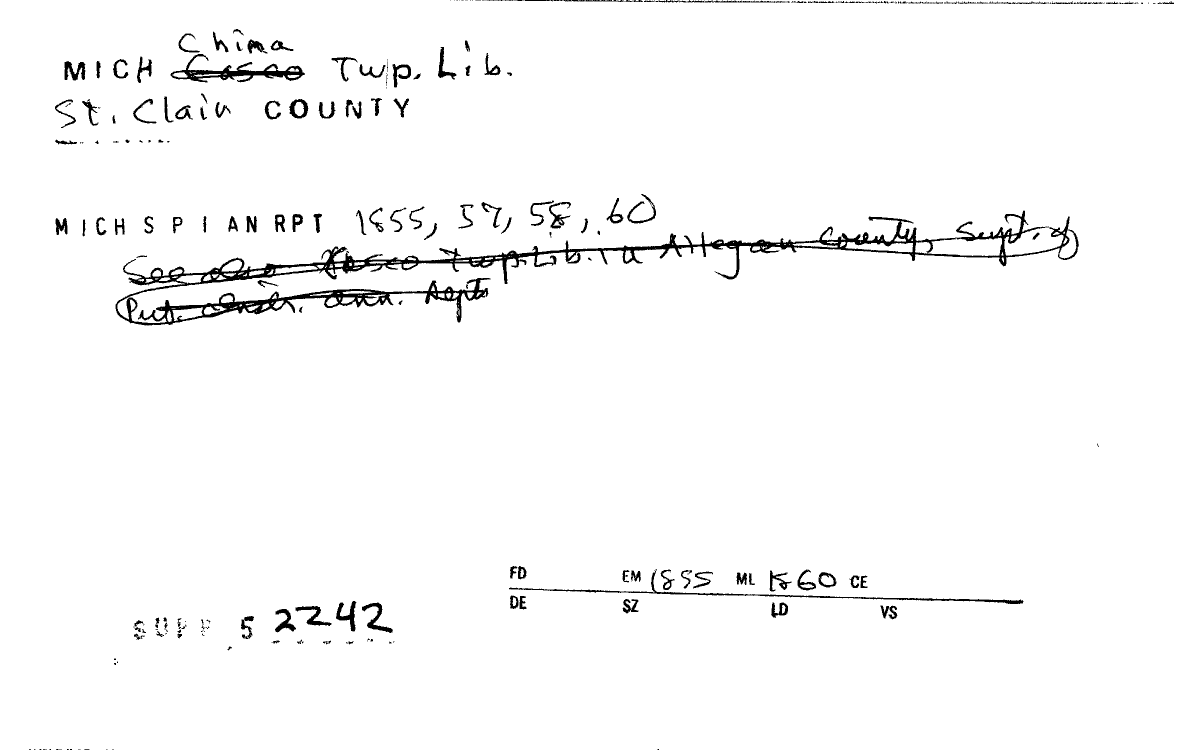 China
MICH Casco Twp. Lib.
St. Clair COUNTY
MICH S P I AN RPT 1855, 57, 58, 60
See also Casco Twp. Lib. Allegan County, Supt. of
Pub. Instr. Ann. Repts
FD EM 1855 ML 1860 CE
DE SZ LD VS
SUPP 5 2242